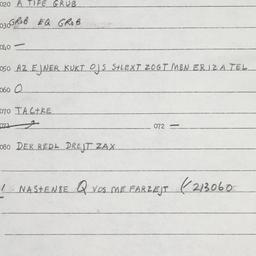 020 A TIFE GRUB
030 GRUB EQ GRUB
040 —
050 AZ EJNER KUKT OJS SHLEXT ZOGT MEN ER IZ A TEL
060 O
070 TACHKE
071 072 —
080 DER REDL DREJT ZAX
! NASHENSE Q VOS ME FARZEJT (/ 213060